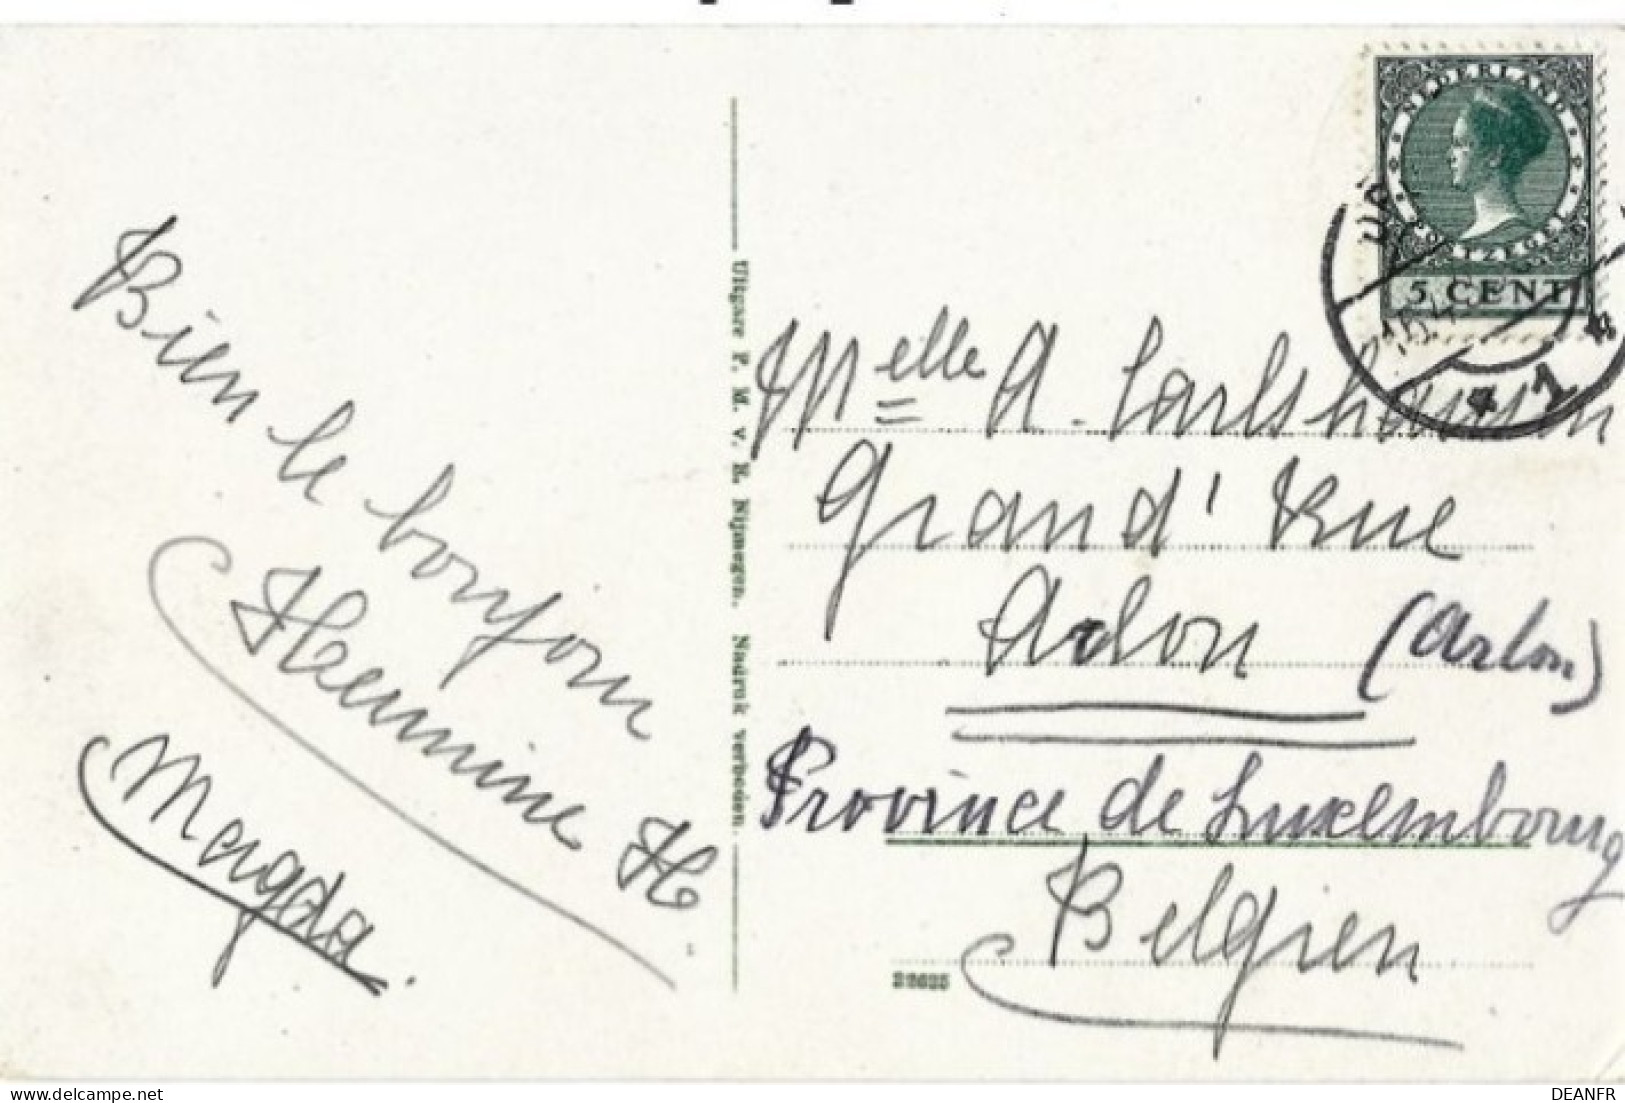 Bien le bonjour
Hermine H.
Magda.
Uitgave P. M. v. E. Nijmegen. Nadruk verboden.
NEDERLAND
POSTZEGEL
5 CENT
1
Melle A. Carlshausen
Grand' Rue
Adon (Arlon)
Province de Luxembourg
Belgien
22625
delcampe.net
DEANFR